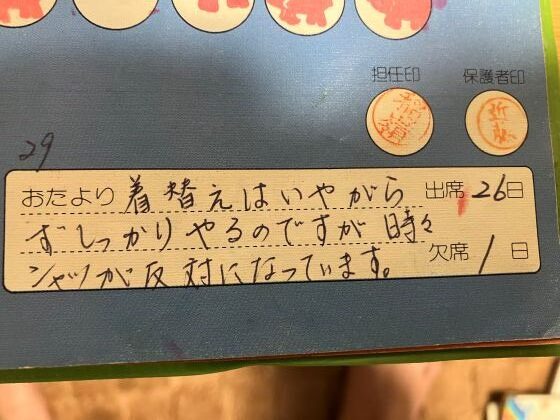 担任印 保護者印
29
おたより 着替えはいやがら 出席 26日
ずしっかりやるのですが時々
シャツが反対になっています。 欠席 1日